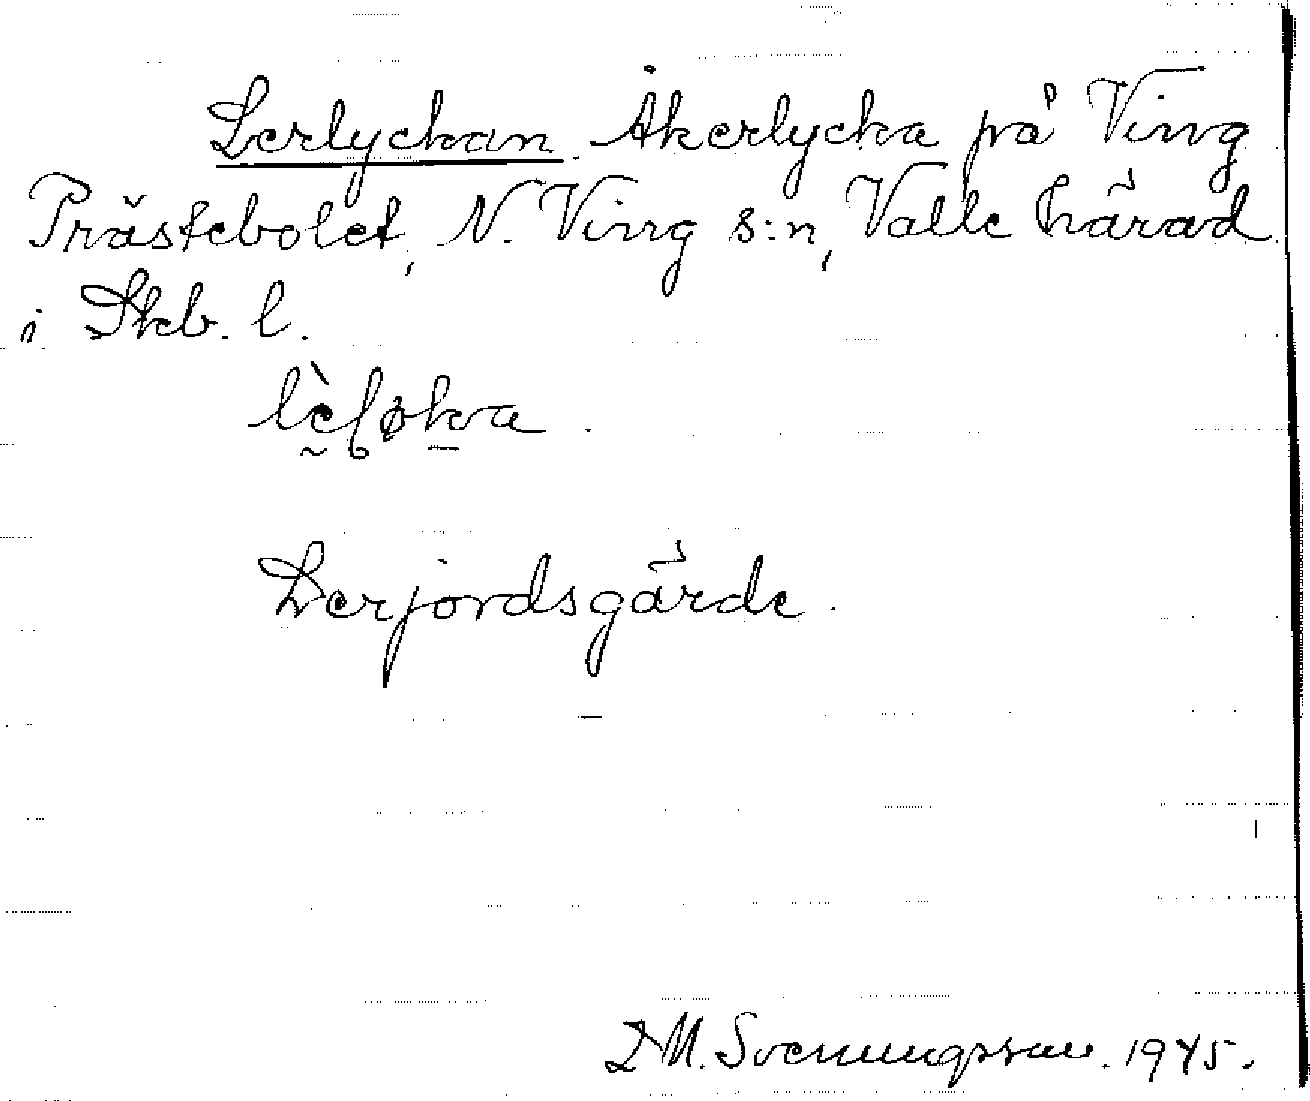 Lerlyckan. Åkerlycka på Ving
Prästebolet, N. Ving s:n, Valle härad
i Skb. l.
Lerjordsgärde.
D M. Svenungsson. 1945.